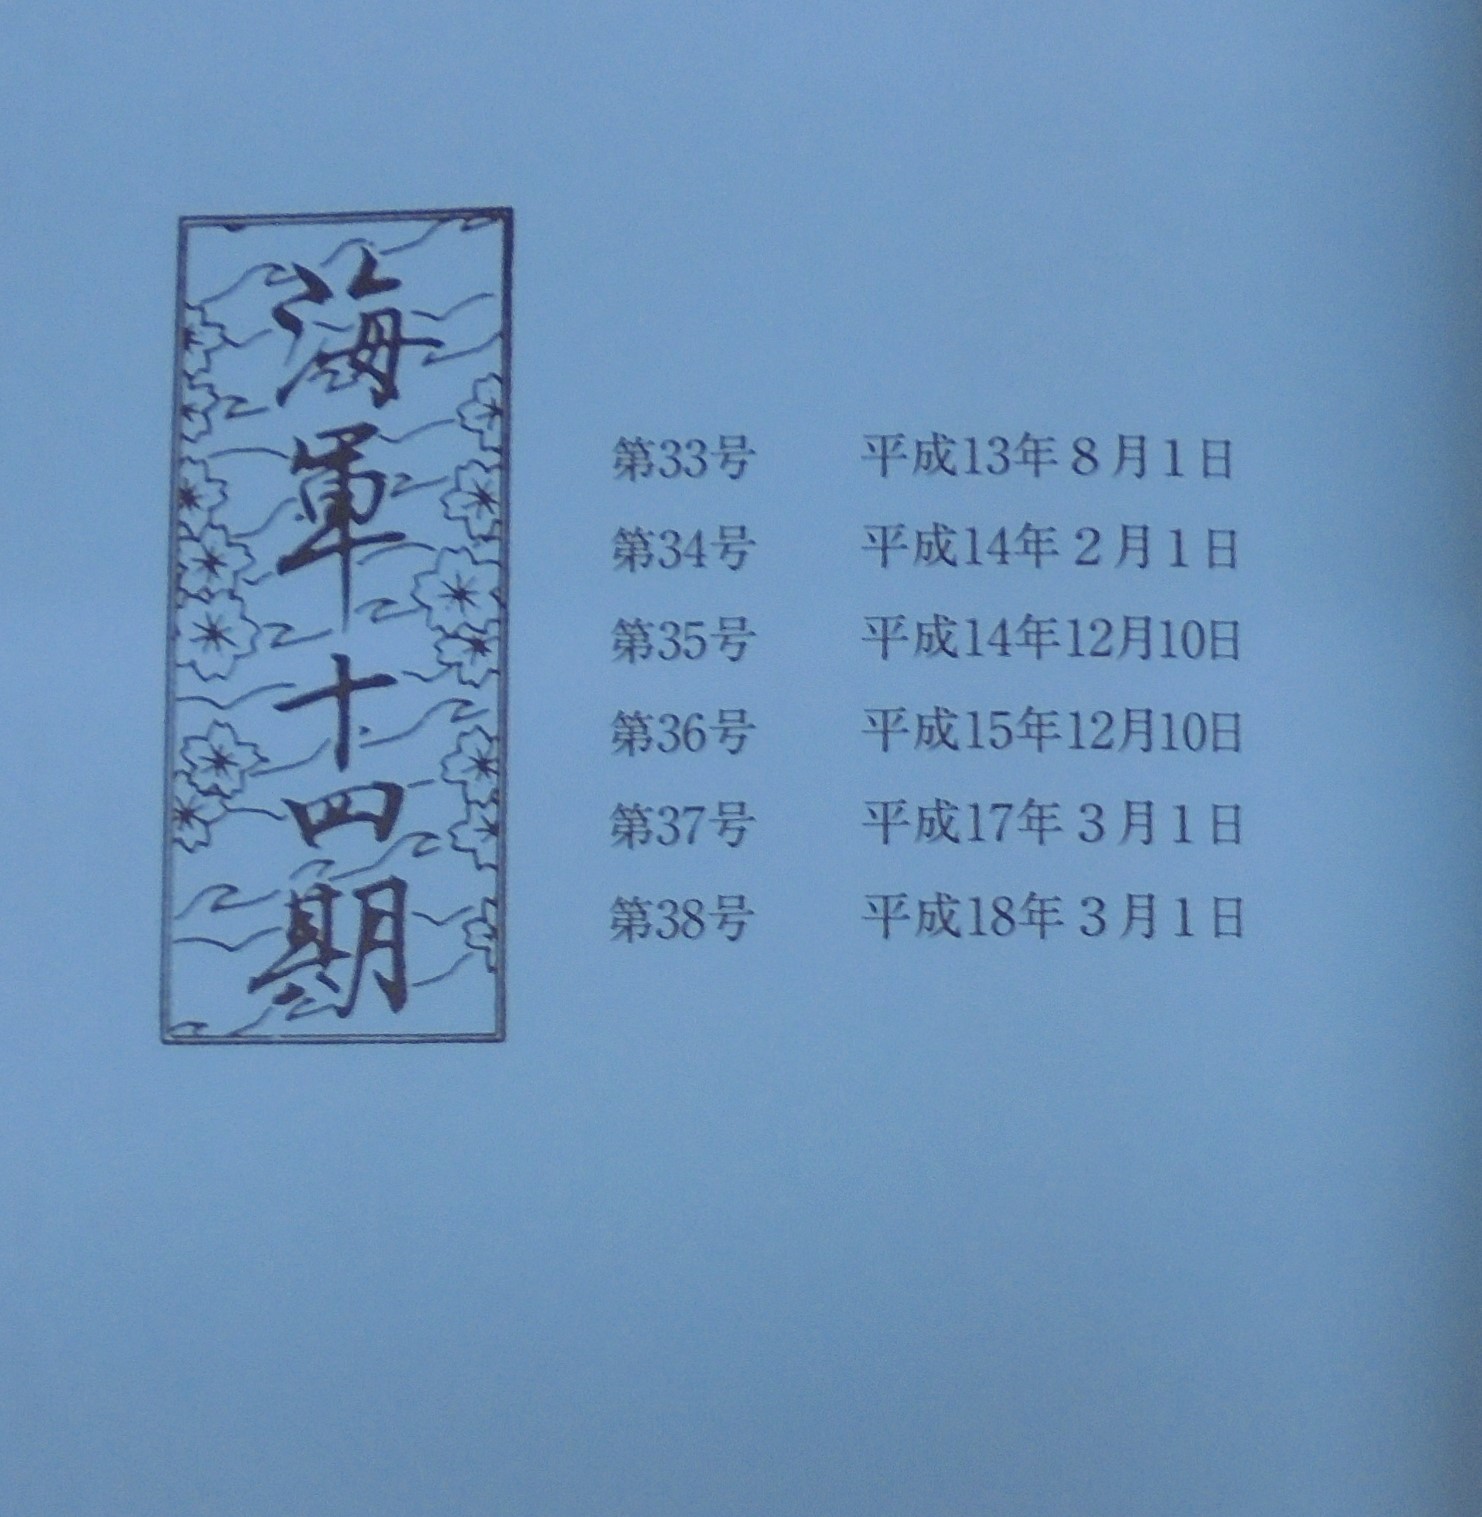 海軍十四期
第33号　平成13年8月1日
第34号　平成14年2月1日
第35号　平成14年12月10日
第36号　平成15年12月10日
第37号　平成17年3月1日
第38号　平成18年3月1日